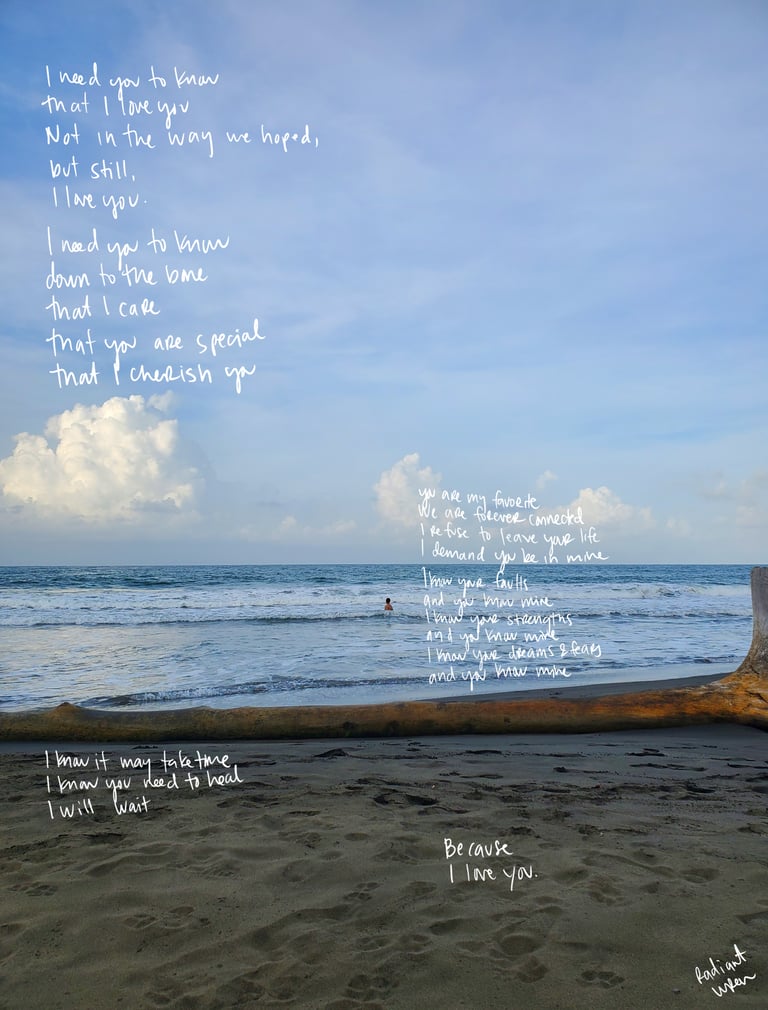 I need you to know
that I love you
Not in the way we hoped,
but still,
I love you.
I need you to know
down to the bone
that I care
that you are special
that I cherish you
you are my favorite
We are forever connected
I refuse to leave your life
I demand you be in mine
I know your faults
and you know mine
I know your strengths
and you know mine
I know your dreams & fears
and you know mine
I know it may take time
I know you need to heal
I will wait
Because
I love you.
Radiant
Wren